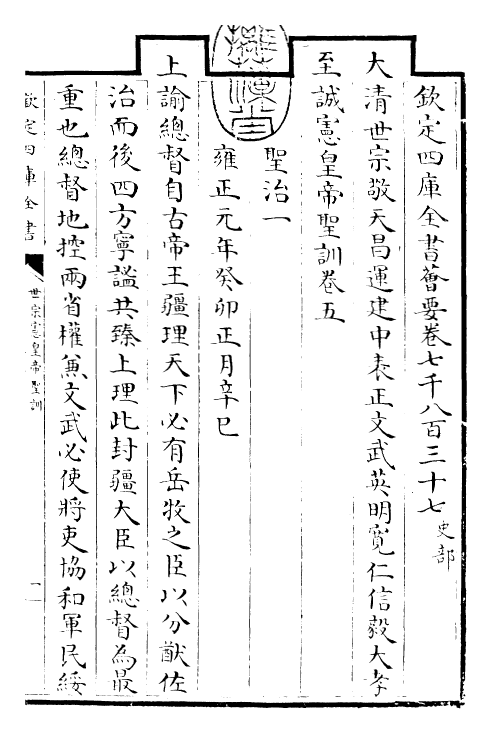 欽定四庫全書薈要卷七千八百三十七 史部
大清世宗敬天昌運建中表正文武英明寬仁信毅大孝
至誠憲皇帝聖訓卷五
聖治一
雍正元年癸卯正月辛巳
上諭總督自古帝王疆理天下必有岳牧之臣以分猷佐
治而後四方寧謐共臻上理此封疆大臣以總督為最
重也總督地控兩省權兼文武必使將吏協和軍民綏
欽定四庫全書
世宗憲皇帝聖訓
一